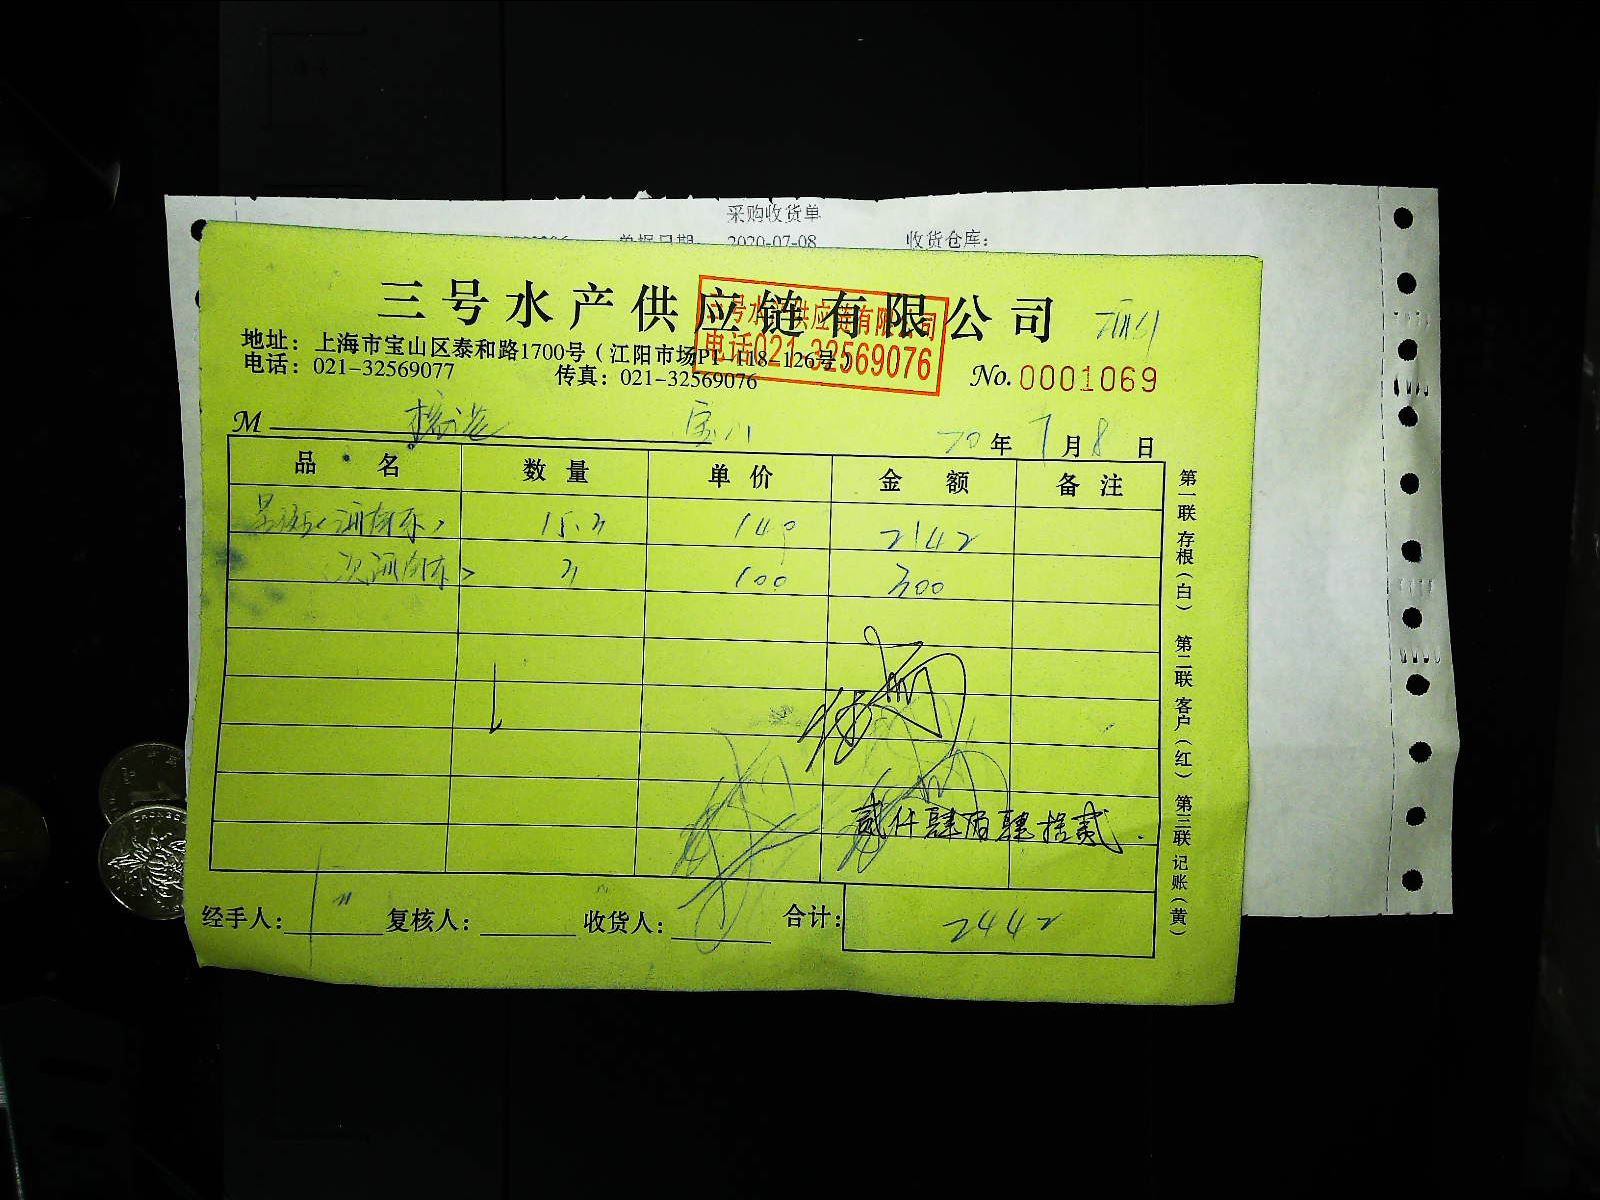 采购收货单
单据日期: 2020-07-08 收货仓库:
三号水产供应链有限公司
三号水产供应链有限公司
电话021-32569076
地址: 上海市宝山区泰和路1700号(江阳市场P1-118-126号)
电话: 021-32569077 传真: 021-32569076
No. 0001069
M 宝山 20 年 7 月 8 日
品 名 数 量 单 价 金 额 备 注
15.3 140 2142
3 100 300
贰仟肆佰肆拾贰.
经手人: 复核人: 收货人: 合计: 2442
第一联 存根(白) 第二联 客户(红) 第三联 记账(黄)